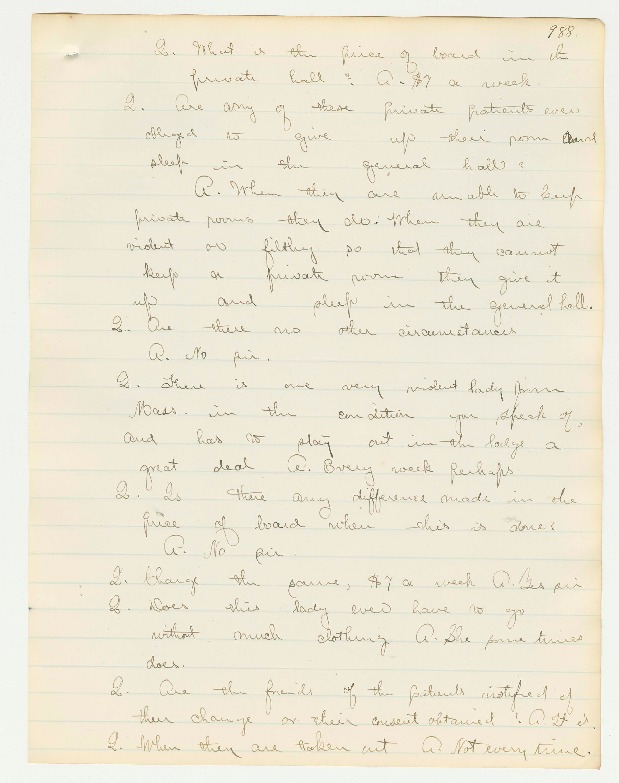 988.
Q. What is the price of board in the
private hall? A. $7 a week.
Q. Are any of these private patients ever
obliged to give up their room and
sleep in the general hall?
A. When they are unable to keep
private rooms they do. When they are
violent or filthy so that they cannot
keep a private room they give it
up and sleep in the general hall.
Q. Are there no other circumstances
A. No sir.
Q. There is one very violent lady from
Mass. in the condition you speak of,
and has to stay out in the lodge a
great deal A. Every week perhaps
Q. Is there any difference made in the
price of board when this is done?
A. No sir.
Q. Charge the same, $7 a week A. Yes sir
Q. Does this lady ever have to go
without much clothing A. She some times
does.
Q. Are the friends of the patients notified of
their change or their consent obtained? A. It is.
Q. When they are taken out A. Not every time.